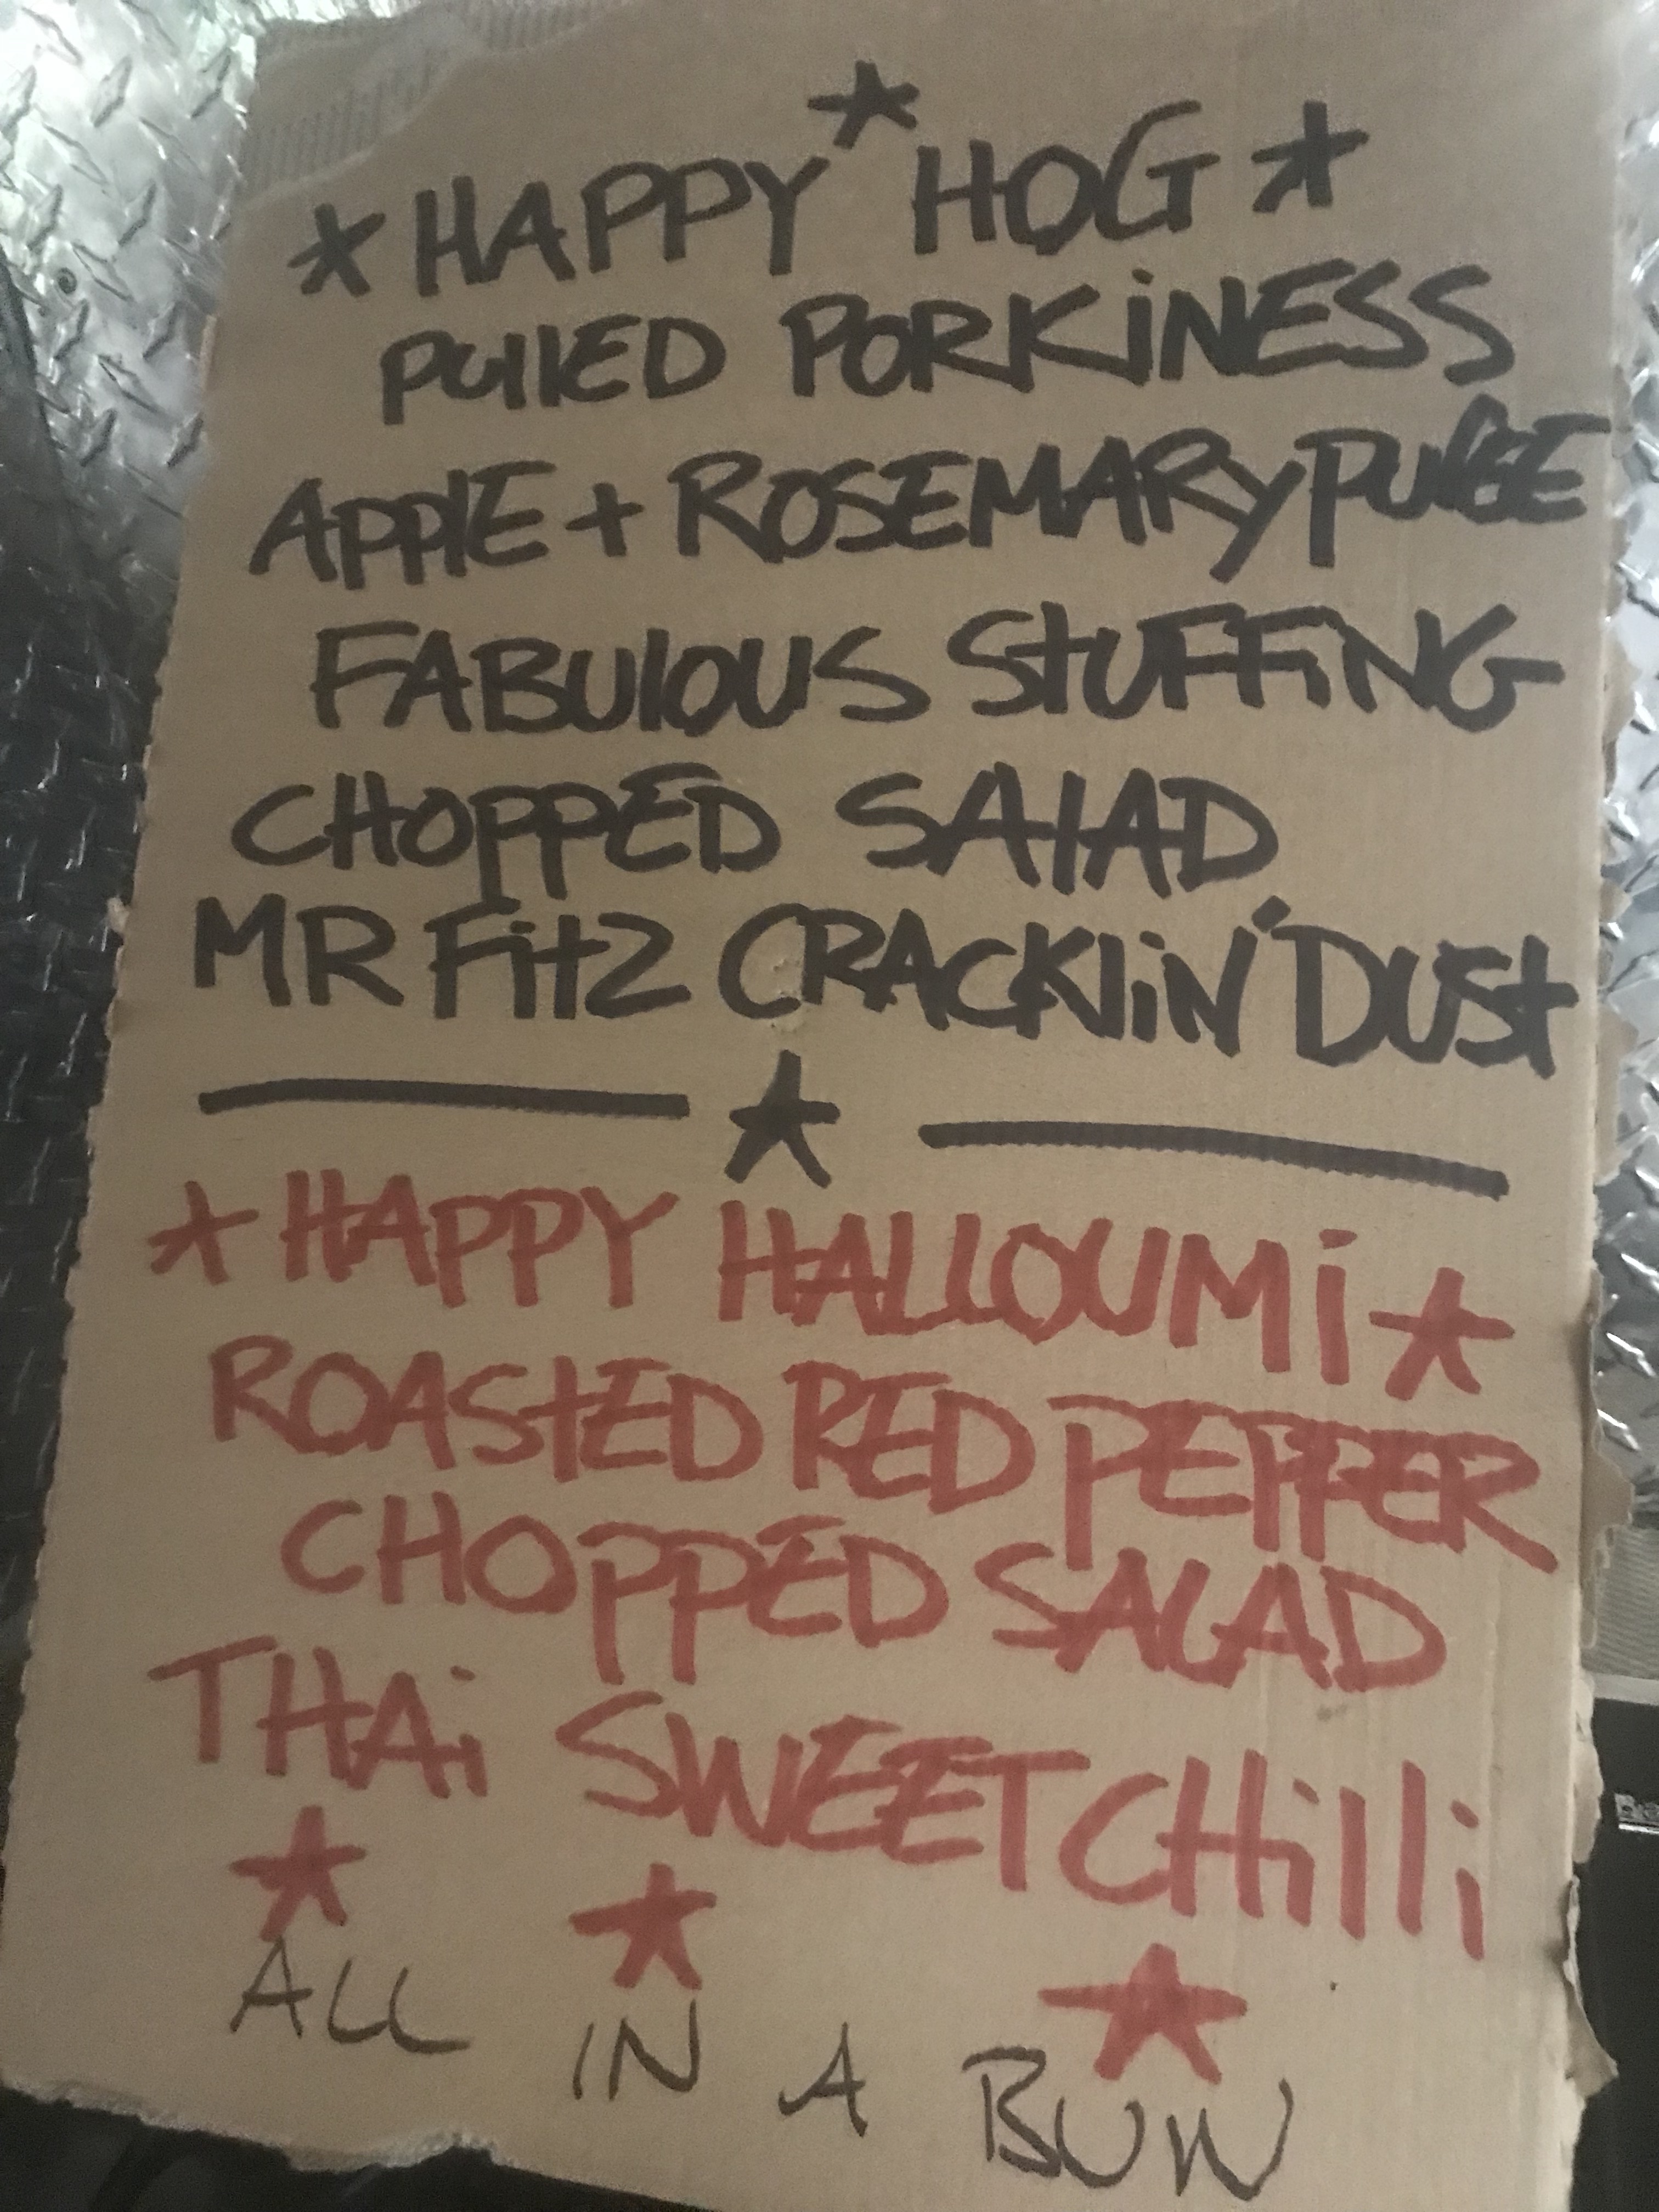 * HAPPY * HOG *
PUllED PORKiNESS
APPlE + ROSEMARY PUREE
FABUlOUS StUFFiNG
CHOPPED SAlAD
MR FitZ CRACKliN' DUSt
★
* HAPPY HALLOUMi ★
ROAStED RED PEPPER
CHOPPED SALAD
THAi SWEET CHilli
★ ★ ★
ALL IN A BUN